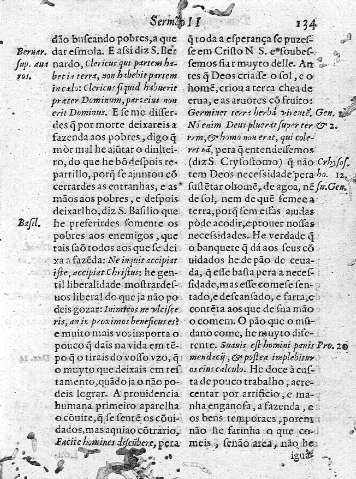 Sermão II
134
dão buscando pobres, a que
dar esmola. E assi diz S. Ber
nardo, Clericus qui partem ha-
bet in terra, non habebit partem
in cælo: Clericus si quid habuerit
præter Dominum, pars eius non
erit Dominus. E se me disser-
des q̃ por morte deixareis a
fazenda aos pobres, digo q̃
mòr mal he ajutar o dinhei-
ro, do que he bõ despois re-
partillo, porq̃ se ajuntou cõ
cerrardes as entranhas, e as
mãos aos pobres, e despois
deixarlho, diz S. Basilio que
he preferirdes somente os
pobres aos enemigos, que
tais saõ todos aos que se dei-
xa a fazẽda: Ne inquit accipiat
iste, accipiat Christus; he gen-
til liberalidade mostrardes-
uos liberal do que ja não po-
deis gozar:
e muito mais vos importa o
pouco q̃ dais na vida em tẽ-
po q̃ o tirais do vosso vzo, q̃
o muyto que deixais em tes
tamento, quãdo ja o não po-
deis lograr. A prouidencia
humana primeiro aparelha
o cõuite, q̃ se sentẽ os cõui-
dados, mas aqui ao cõtrario,
Facite homines discũbere, pera
Bernar.
sup. aud
ros.
Basil.
q̃ toda a esperança se puzes-
se em Cristo N S. e soubes-
semos fiar muyto delle. An
tes q̃ Deos criasse o sol, e o
homẽ, criou a terra chea de
erua, e as aruores cõ fruito:
Germinet terra herbã virentẽ,
Ni enim Deus pluerat super ter
rã, & homo non erat, qui cole-
ret eã, pera q̃ entendessemos
(diz S. Crysostomo) q̃ não
tem Deos necessidade pera
sustẽtar o homẽ, de agoa, nẽ
de sol, nem de quẽ semee a
terra, porq̃ sem essas ajudas
põde acodir, e prouer nossas
necessidades. He verdade q̃
o banquete q̃ dá aos seus cõ
uidados he de pão de ceua-
da, q̃ esse basta pera a neces-
sidade, mas esse come se sen-
tado, e descansado, e farta, e
contẽta aos que de sua mão
o comem. O pão que o mũ-
dano come, he muyto dife-
rente. Suauis est homini panis
mendacij, & postea implebitur
os eius calculo. He doce à cus-
ta de pouco trabalho, acre-
centar por artificio, e ma-
nha enganosa, a fazenda, e
os bens temporaes, porem
não he farinha o que co-
meis, senão area, não he
igua-
Gen.
2.
Chrysos.
ho. 12.
in Gen.
Pro. 20